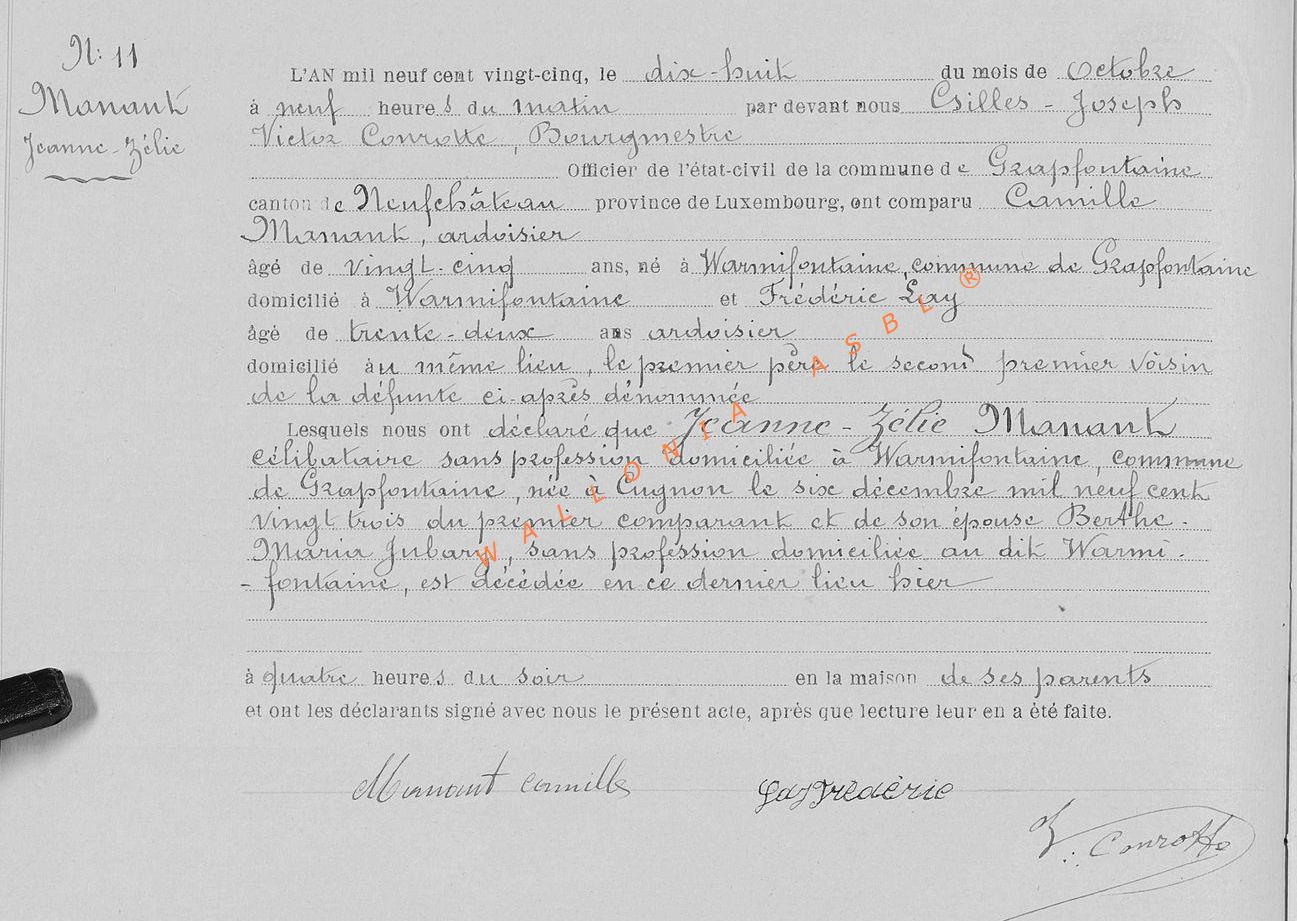 N: 11
Manant
Jeanne-Zélie
L'AN mil neuf cent vingt-cinq, le dix-huit du mois de Octobre
à neuf heures du matin par devant nous Gilles-Joseph
Victor Conrotte, Bourgmestre
Officier de l'état-civil de la commune de Grapfontaine
canton de Neufchâteau province de Luxembourg, ont comparu Camille
Manant, ardoisier
âgé de vingt-cinq ans, né à Warmifontaine, commune de Grapfontaine
domicilié à Warmifontaine et Frédéric Lay
âgé de trente-deux ans ardoisier
domicilié au même lieu, le premier père le second premier voisin
de la défunte ci-après dénommée
Lesquels nous ont déclaré que Jeanne-Zélie Manant
célibataire sans profession domiciliée à Warmifontaine, commune
de Grapfontaine, née à Cugnon le six décembre mil neuf cent
vingt trois du premier comparant et de son épouse Berthe-
Maria Jubary, sans profession domiciliée au dit Warmi-
-fontaine, est décédée en ce dernier lieu hier
à quatre heures du soir en la maison de ses parents
et ont les déclarants signé avec nous le présent acte, après que lecture leur en a été faite.
Manant Camille Lay Frédéric
V. Conrotte
WALLONIA ASBL ®